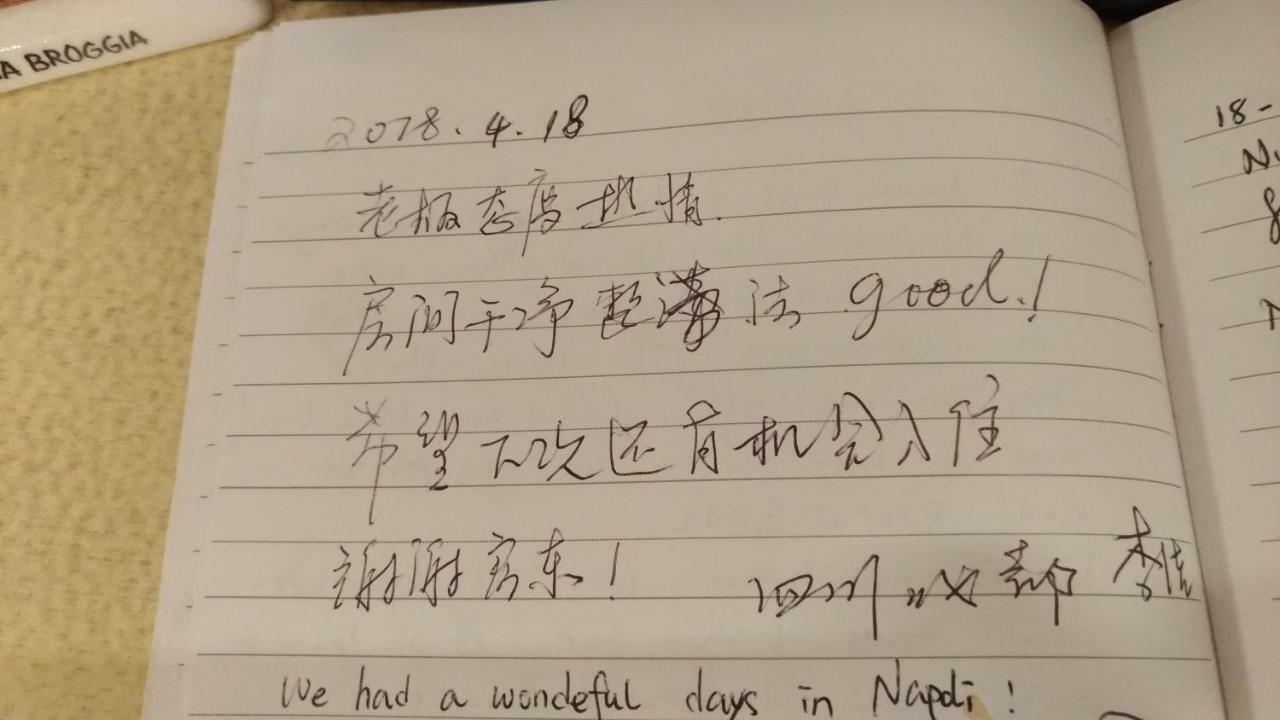 A BROGGIA
2018.4.18
老板态度热情.
房间干净整洁 good!
希望下次还有机会入住
谢谢房东!
四川 成都 李倩
We had a wondeful days in Napoli!
18-